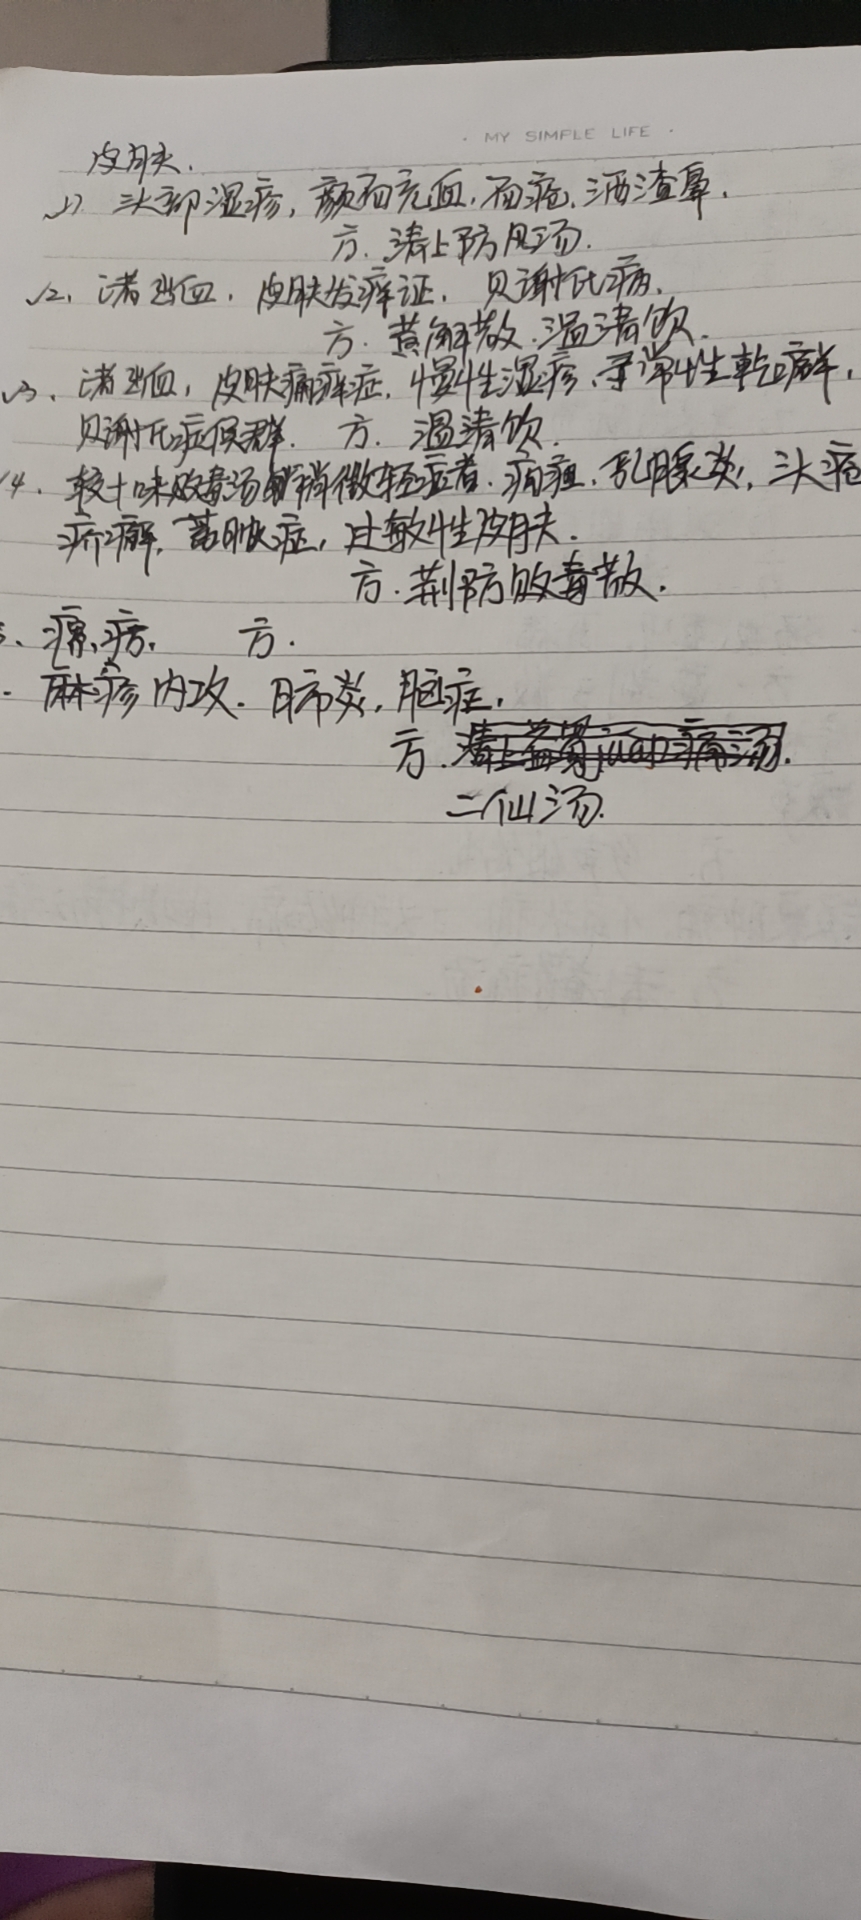 · MY SIMPLE LIFE ·
皮肤.
1) 头部湿疹, 颜面充血, 面疱, 酒渣鼻.
方. 清上防风汤.
2. 诸出血, 皮肤发痒证, 贝谢氏病.
方. 黄解散. 温清饮.
3. 诸出血, 皮肤痛痒症, 慢性湿疹, 寻常性乾癣,
贝谢氏症候群. 方. 温清饮.
4. 较十味败毒汤稍微轻症者. 痈疽, 乳腺炎, 头疮
疥癣, 症, 过敏性皮肤.
方. 荆防败毒散.
、瘰疬. 方.
. 麻疹内攻. 肺炎, 脑症,
方.
二仙汤.